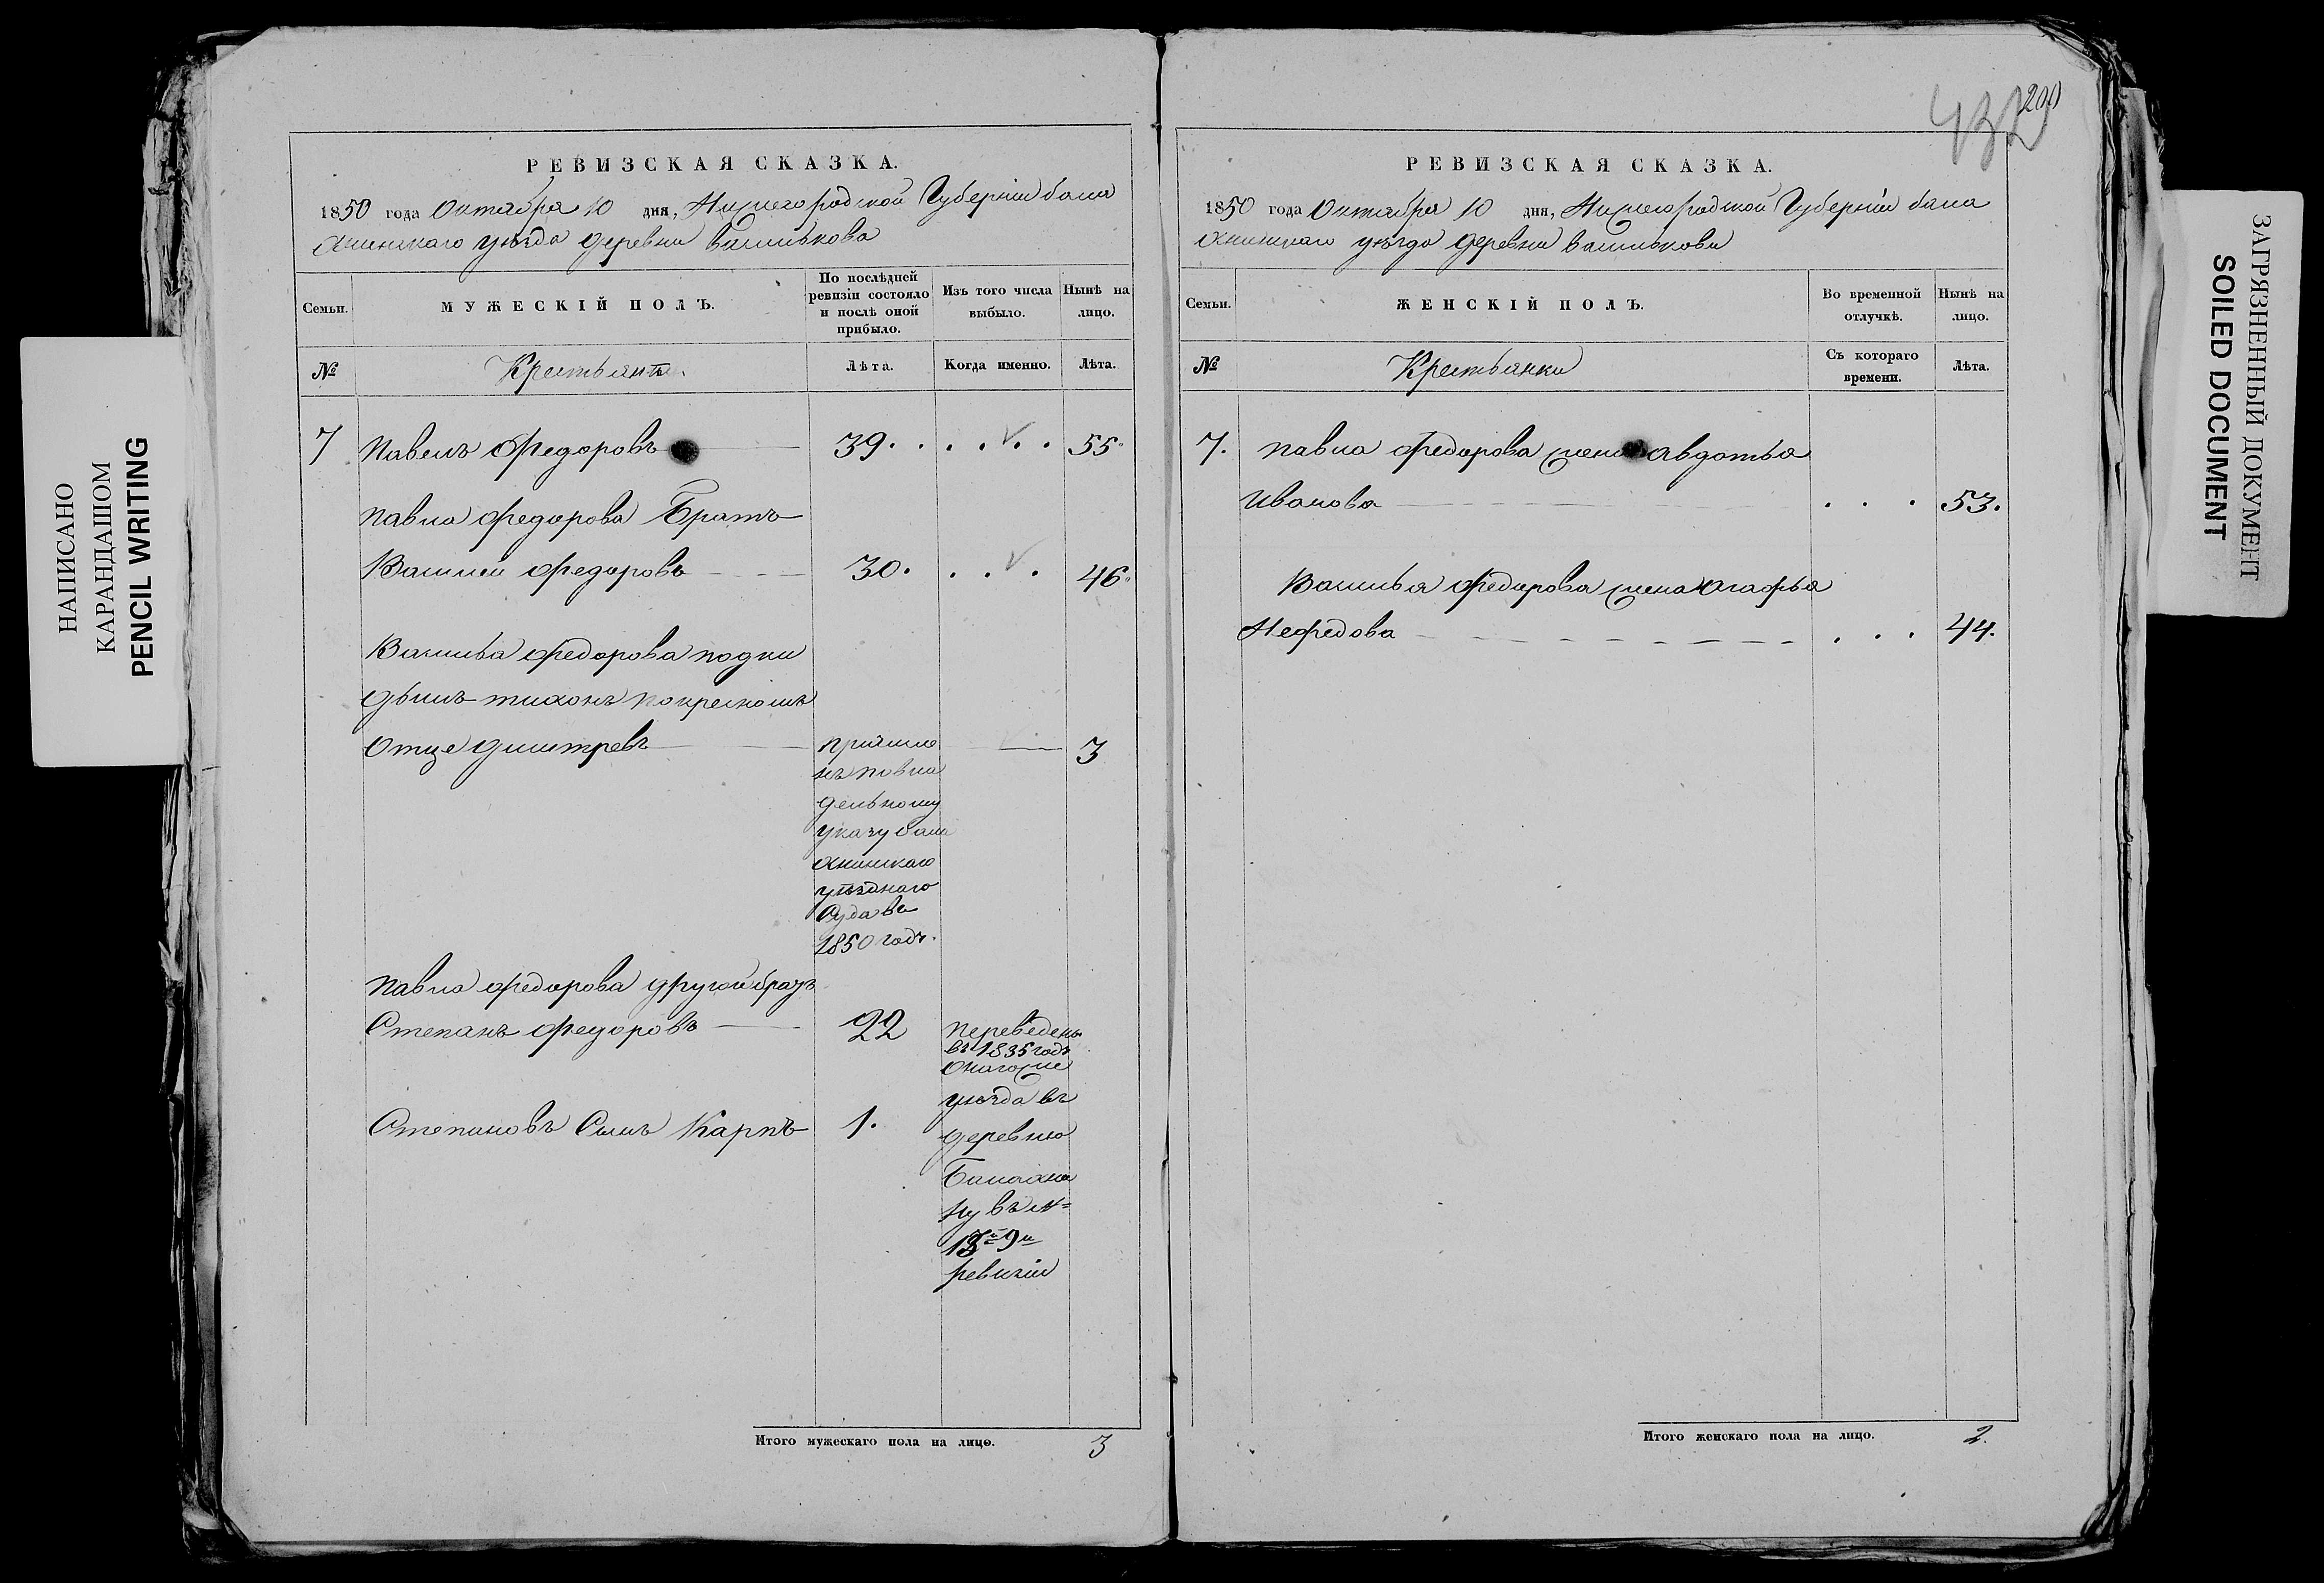 НАПИСАНО
КАРАНДАШОМ
PENCIL WRITING
РЕВИЗСКАЯ СКАЗКА.
1850 года Октября 10 дня, Нижегородской Губерніи бала
хнинскаго уѣзда деревни Василькова
Семьи.
МУЖЕСКІЙ ПОЛЪ.
По послѣдней ревизіи состояло и послѣ оной прибыло.
Изъ того числа выбыло.
Нынѣ на лицо.
№
Крестьяне.
Лѣта.
Когда именно.
Лѣта.
7 Павелъ Федоровъ 39. 55
Павла Федорова Братъ
Василей Федоровъ 30. 46
Василья Федорова подки
дышъ тихонъ покресном
Отце дмитревъ 3
причисле
нъ повла
дельному
указу бала
хнинскаго
уѣзднаго
Суда въ
1850 годъ.
Павла Федорова другой братъ
Степанъ Федоровъ 22
Степановъ Сынъ Карпъ 1.
переведенъ
въ 1835 годъ
Онагоже
уѣзда въ
деревню
Балахон
ку въ №
13 9й
ревизіи
Итого мужескаго пола на лицо. 3
432
200
РЕВИЗСКАЯ СКАЗКА.
1850 года Октября 10 дня, Нижегородской Губерніи бала
хнинскаго уѣзда деревни Василькови
Семьи.
ЖЕНСКІЙ ПОЛЪ.
Во временной отлучкѣ.
Нынѣ на лицо.
№
Крестьянки
Съ котораго времени.
Лѣта.
7. павла Федорова жена Авдотья
Иванова 53.
Василья Федорова жена Агафья
Нефедова 44.
Итого женскаго пола на лицо. 2.
ЗАГРЯЗНЕННЫЙ ДОКУМЕНТ
SOILED DOCUMENT